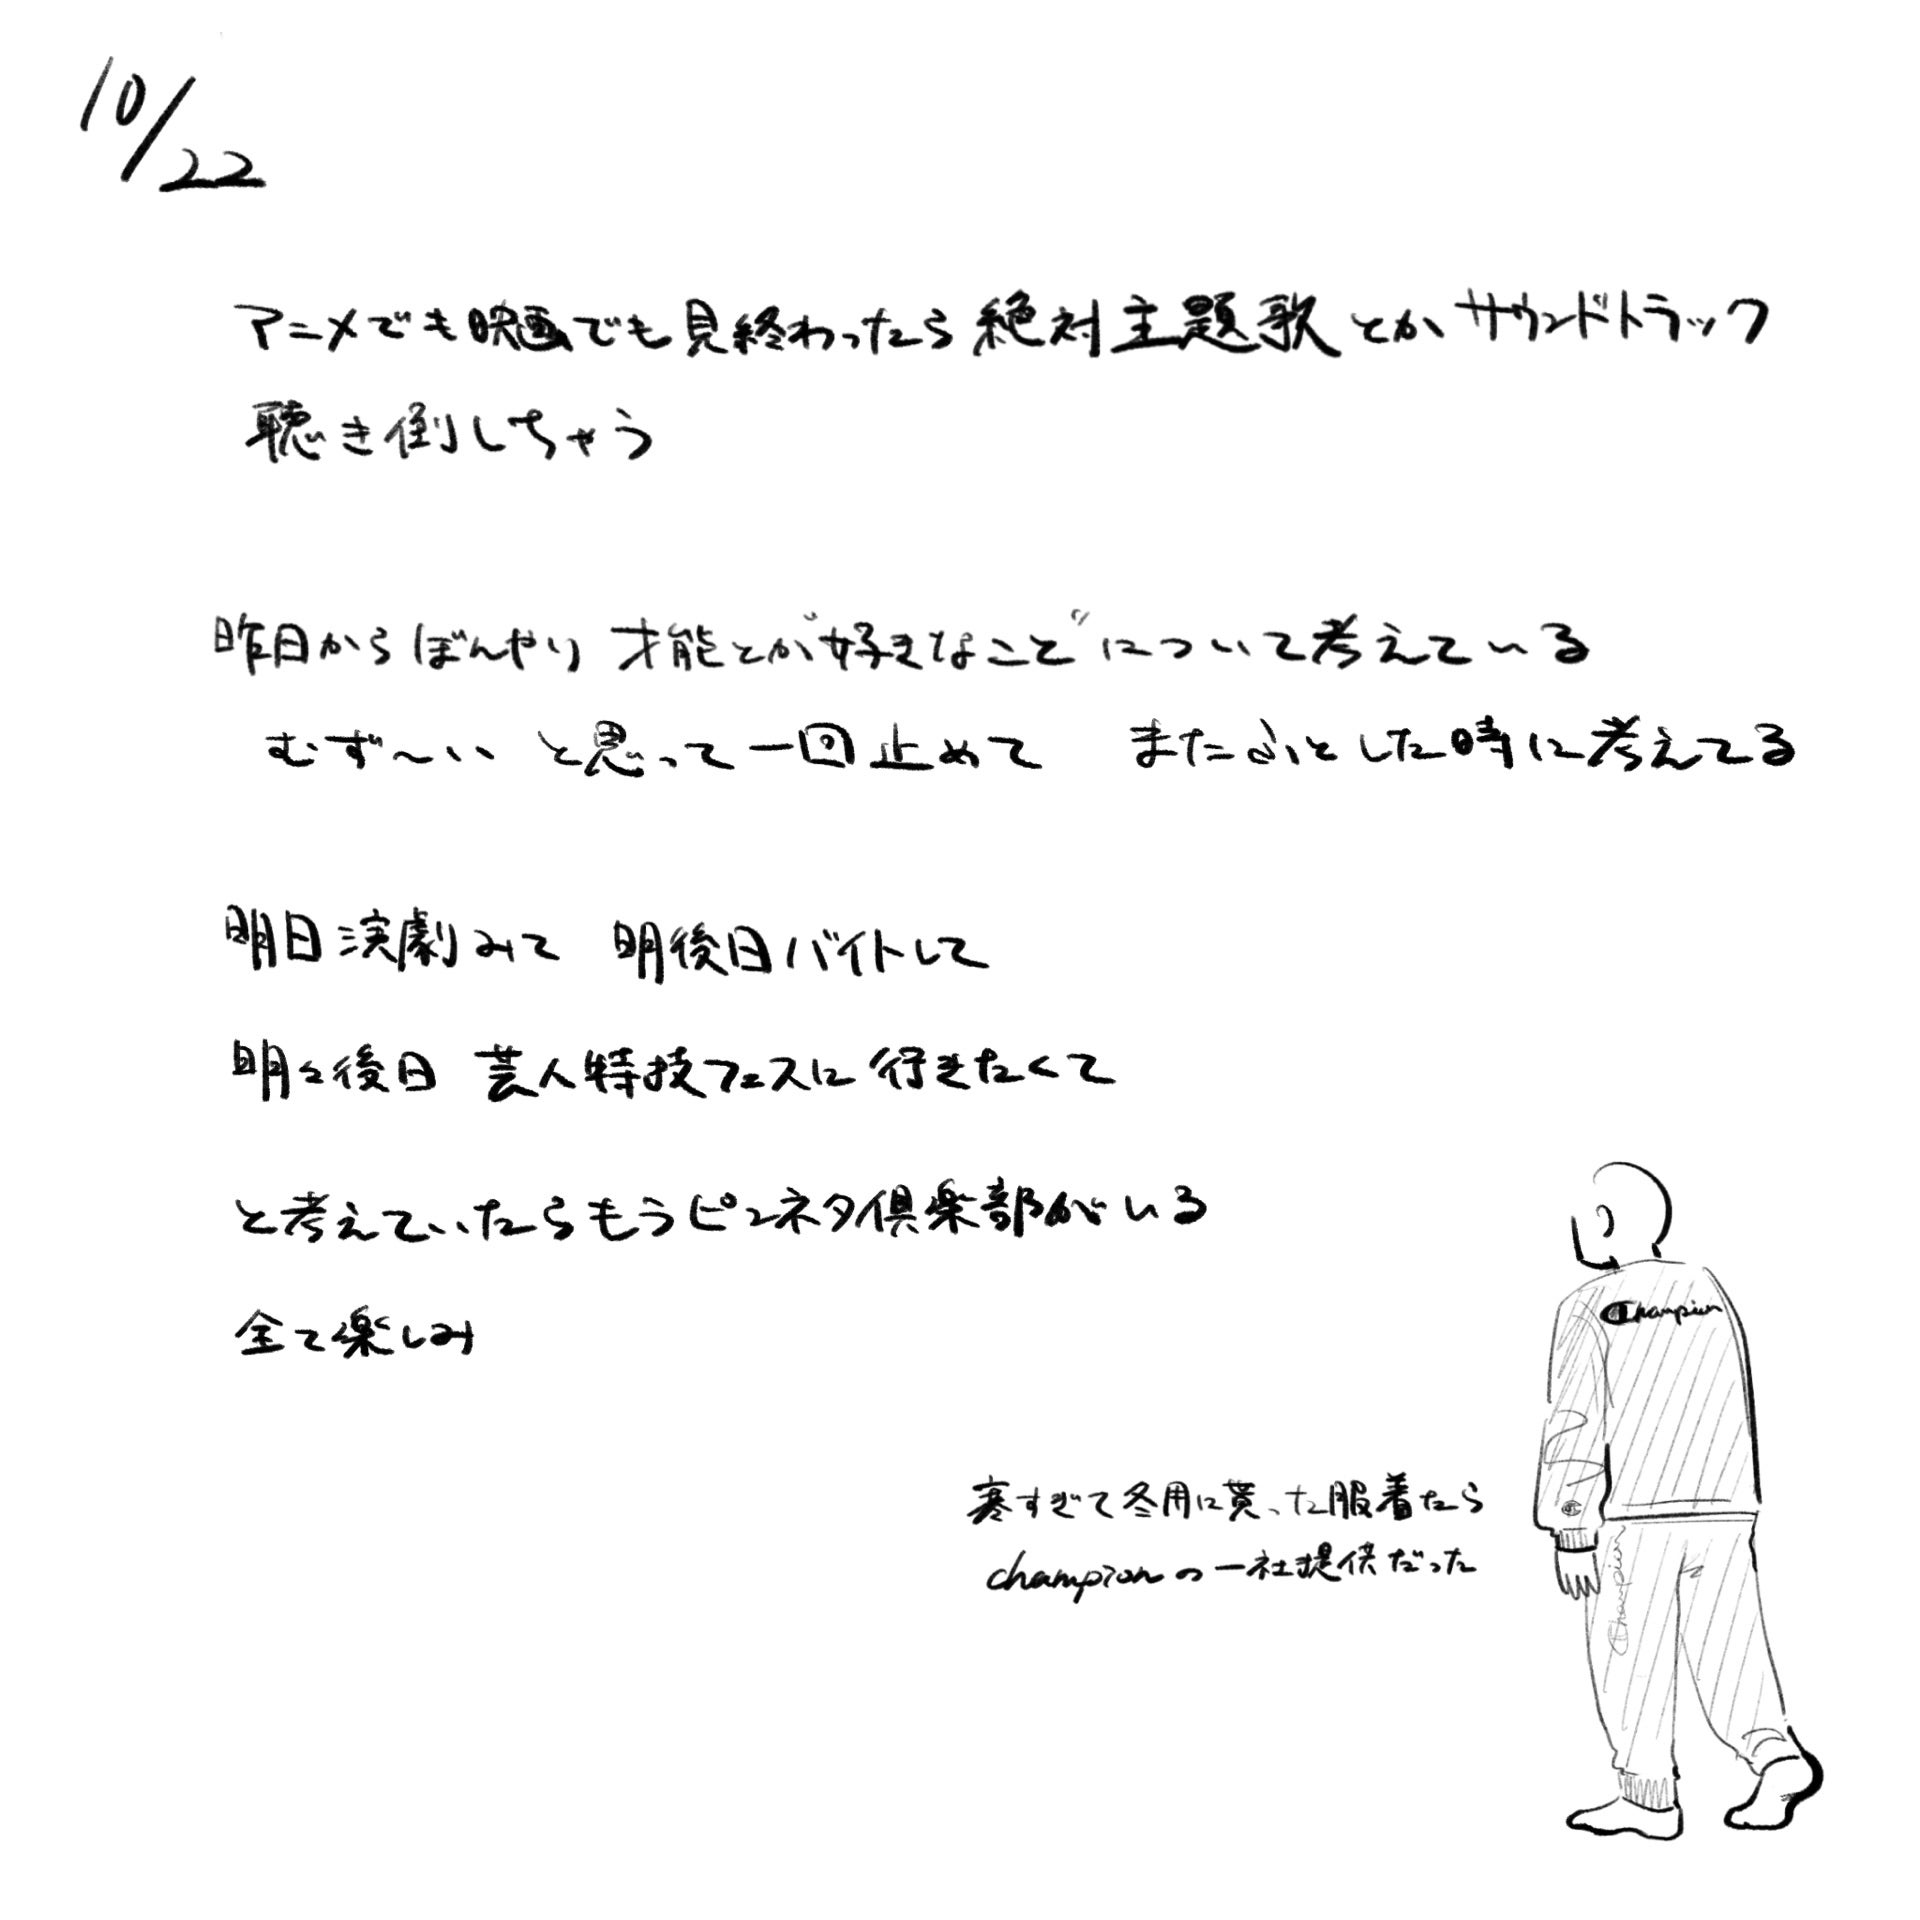 10/22
アニメでも映画でも見終わったら絶対主題歌とかサウンドトラック
聴き倒しちゃう
昨日からぼんやり 才能とか"好きなこと"について考えている
むず〜い と思って一回止めて またふとした時に考えてる
明日演劇みて 明後日バイトして
明々後日 芸人特技フェスに行きたくて
と考えていたらもうピンネタ倶楽部がいる
全て楽しみ
Champion
寒すぎて冬用に買った服着たら
championの一社提供だった
Champion